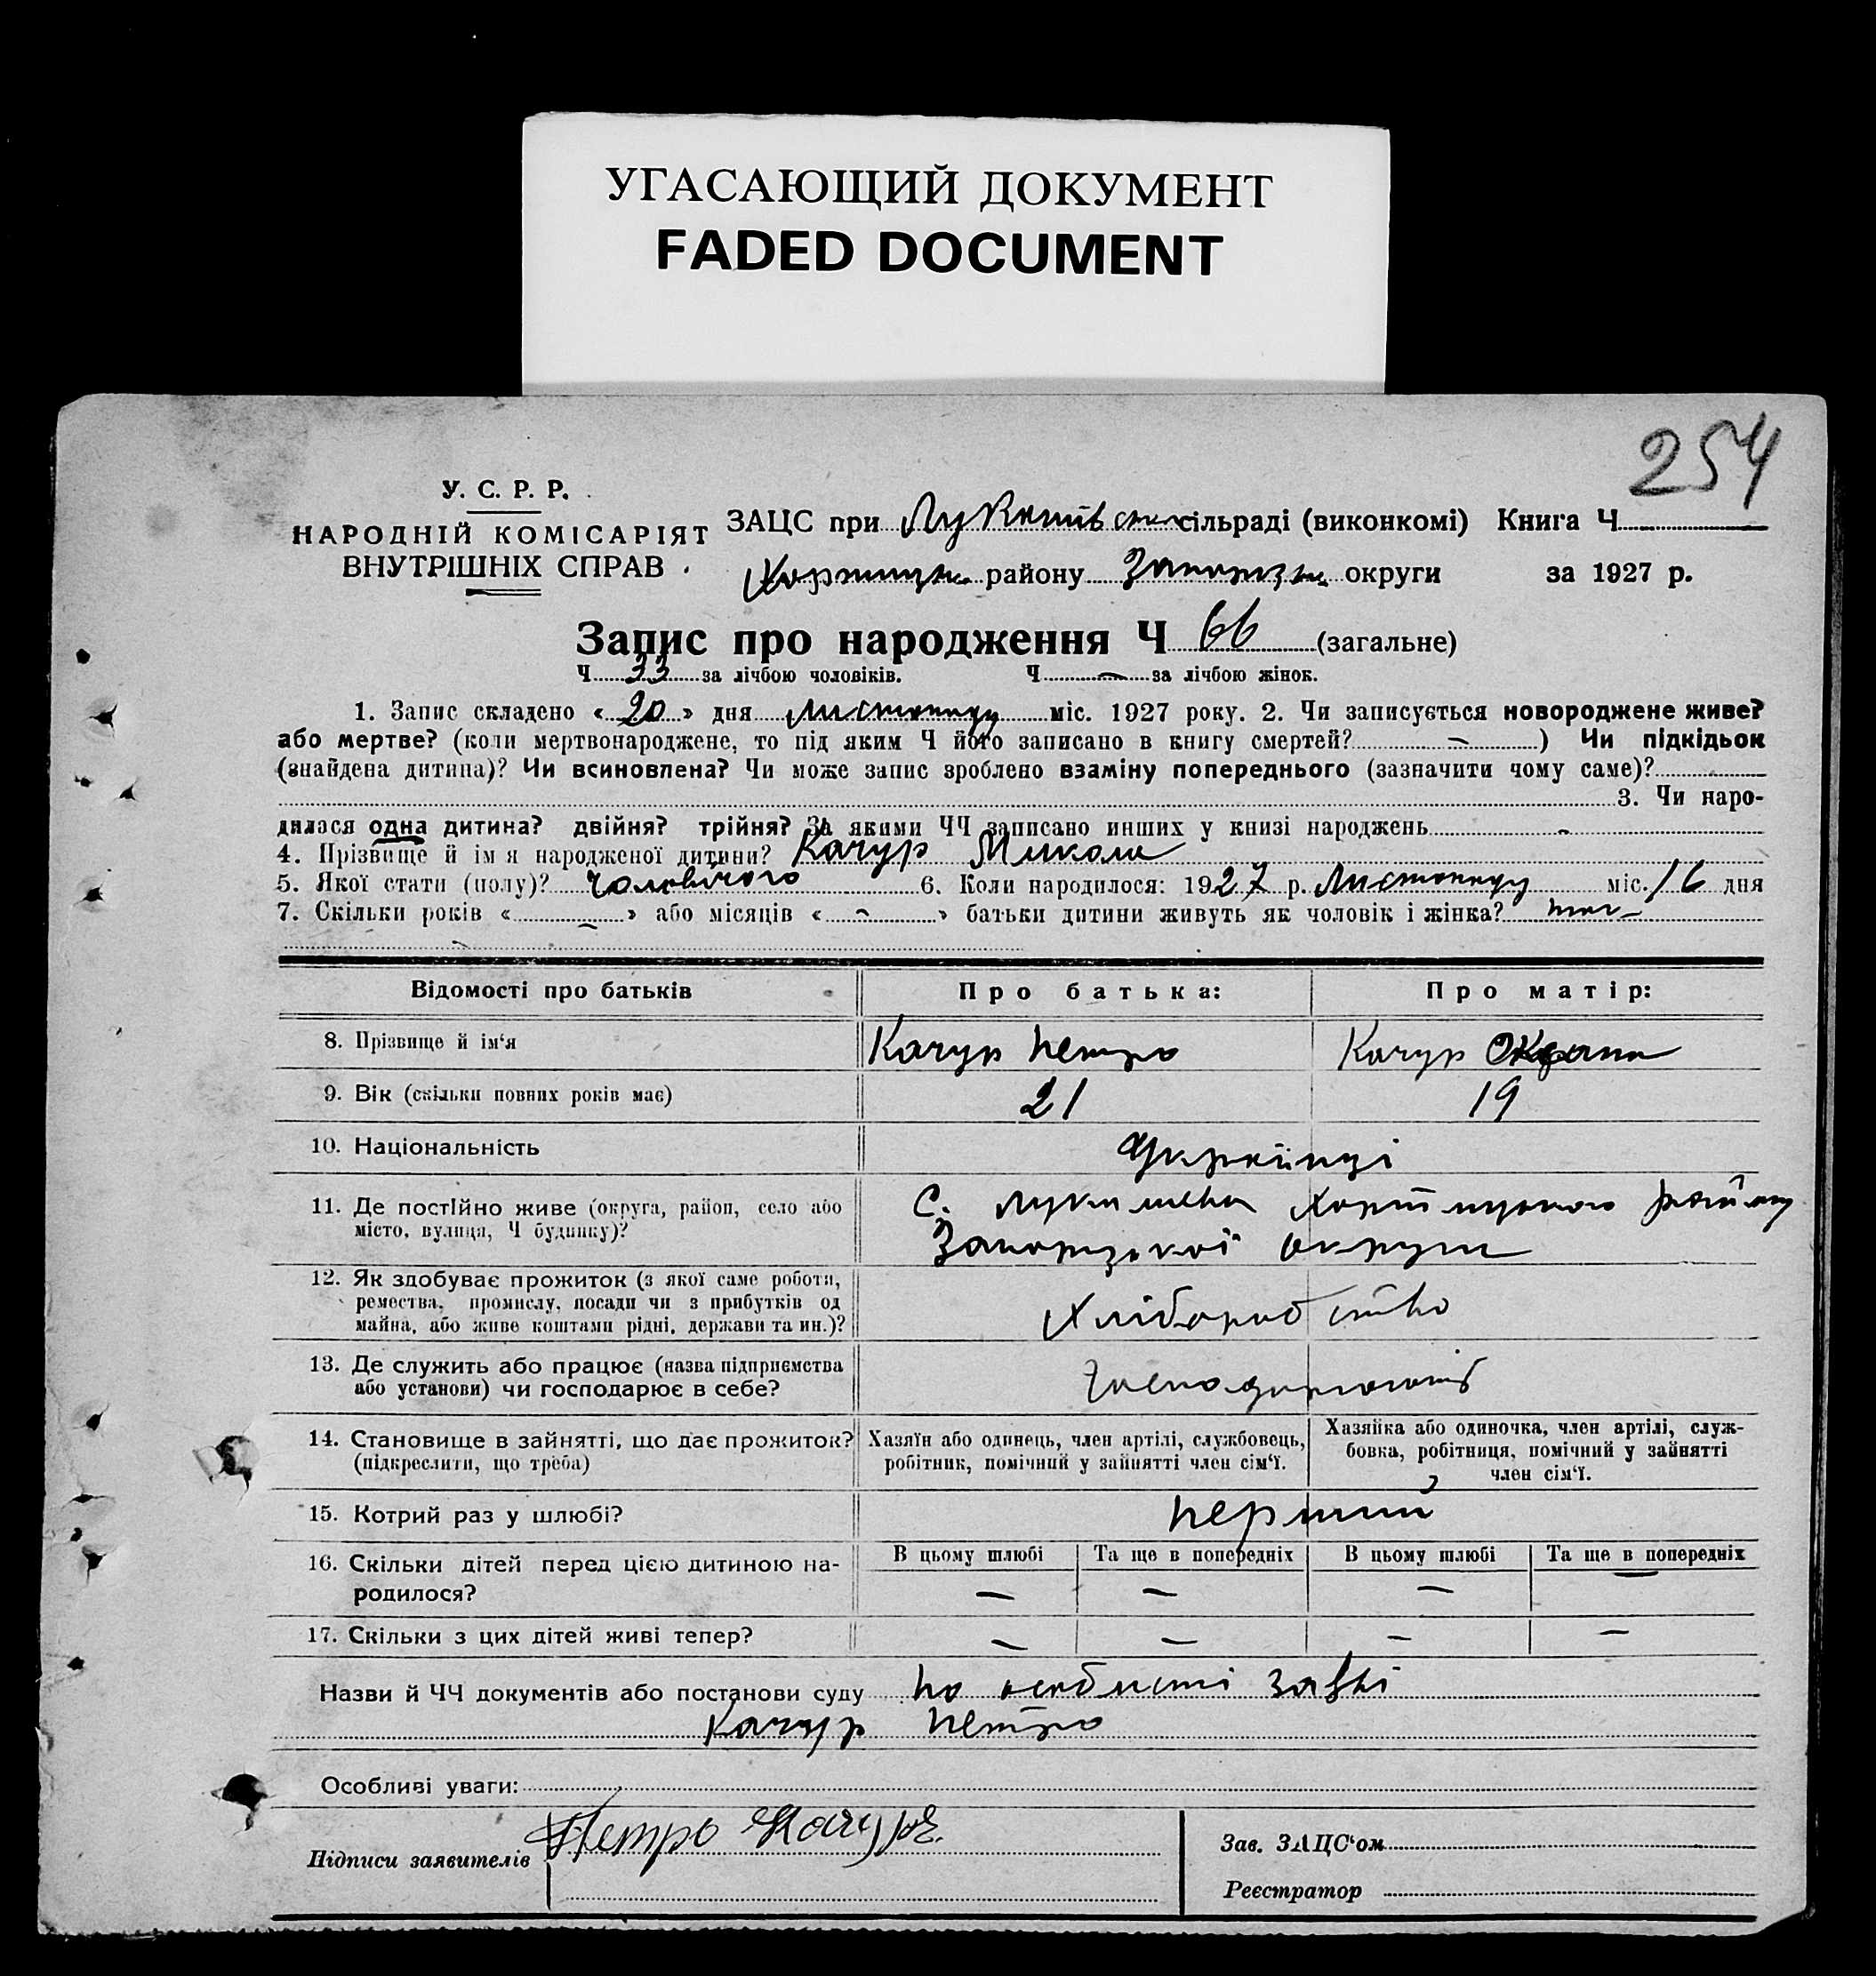 УГАСАЮЩИЙ ДОКУМЕНТ
FADED DOCUMENT
254
У. С. Р. Р.
НАРОДНІЙ КОМІСАРІЯТ
ВНУТРІШНІХ СПРАВ
ЗАЦС при сільраді (виконкомі) Книга Ч
району округи за 1927 р.
Запис про народження Ч 66 (загальне)
Ч 33 за лічбою чоловіків. Ч — за лічбою жінок.
1. Запис складено « 20 » дня Листопаду міс. 1927 року. 2. Чи записується новороджене живе?
або мертве? (коли мертвонароджене, то під яким Ч його записано в книгу смертей? — ) Чи підкідьок
(знайдена дитина)? Чи всиновлена? Чи може запис зроблено взаміну попереднього (зазначити чому саме)?
3. Чи наро-
дилася одна дитина? двійня? трійня? За якими ЧЧ записано инших у книзі народжень -
4. Прізвище й ім я народженої дитини? Качур Микола
5. Якої стати (полу)? чоловічого 6. Коли народилося: 1927 р. Листопаду міс. 16 дня
7. Скільки років « — » або місяців « — » батьки дитини живуть як чоловік і жінка?
Відомості про батьків Про батька: Про матір:
8. Прізвище й ім'я Качур Петро Качур
9. Вік (скільки повних років має) 21 19
10. Національність Українці
11. Де постійно живе (округа, район, село або
місто, вулиця, Ч будинку)?
С. Хортицького району
Запорізької округи
12. Як здобуває прожиток (з якої саме роботи,
ремества, промислу, посади чи з прибутків од
майна, або живе коштами рідні, держави та ин.)?
Хліборобство
13. Де служить або працює (назва підприємства
або установи) чи господарює в себе?
14. Становище в зайнятті, що дає прожиток?
(підкреслити, що треба)
Хазяїн або одинець, член артілі, службовець,
робітник, помічний у зайнятті член сім'ї.
Хазяйка або одиночка, член артілі, служ-
бовка, робітниця, помічний у зайнятті
член сім'ї.
15. Котрий раз у шлюбі? перший
16. Скільки дітей перед цією дитиною на-
родилося?
В цьому шлюбі Та ще в попередніх В цьому шлюбі Та ще в попередніх
— — — —
17. Скільки з цих дітей живі тепер? — — — —
Назви й ЧЧ документів або постанови суду по особисті заяві
Качур Петро
Особливі уваги:
Підписи заявителів Петро Качур
Зав. ЗАЦС'ом
Реєстратор